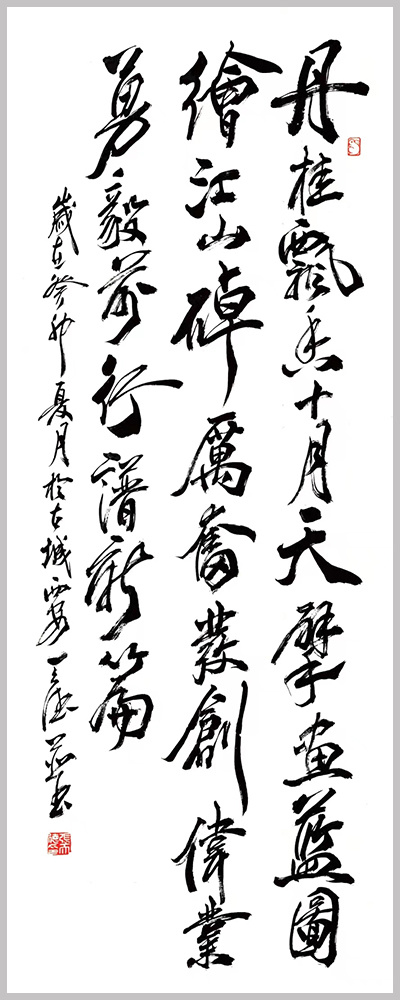 丹桂飄香十月天擘畫藍圖
繪江山踔厲奮發創偉業
勇毅前行譜新篇
歲在癸卯夏月於古城西安書